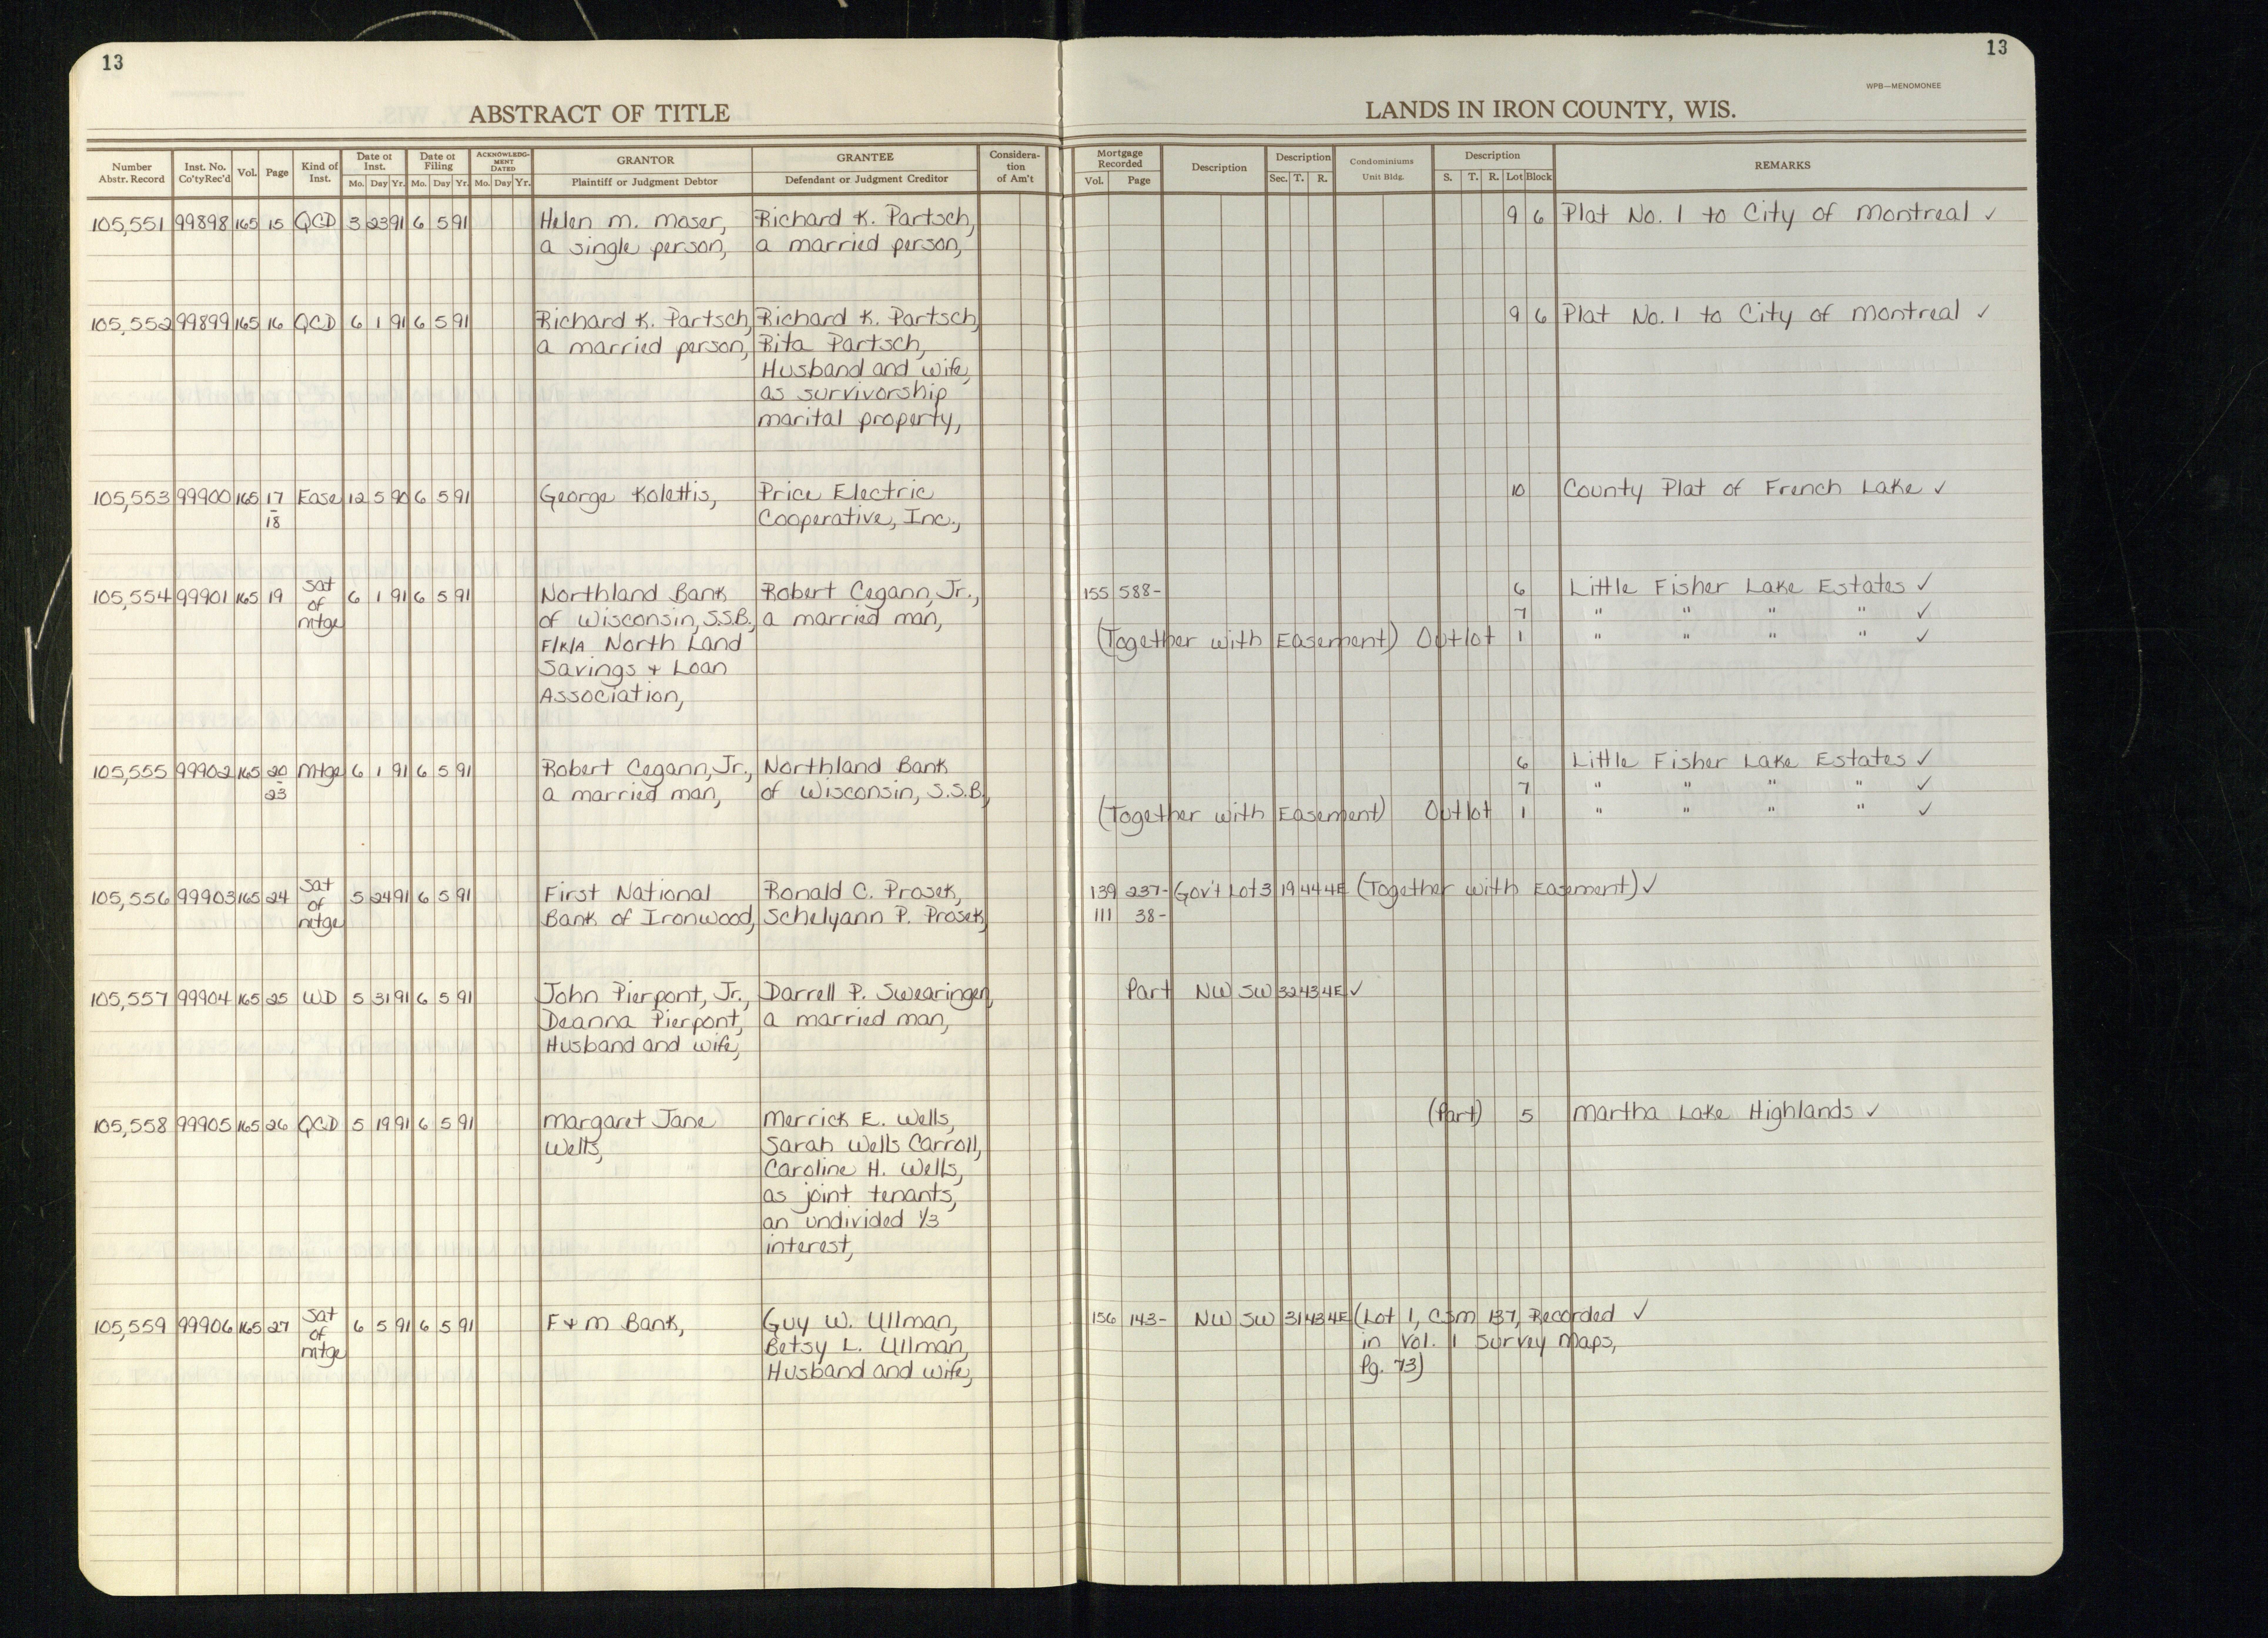 13
13
WPB—MENOMONEE
ABSTRACT OF TITLE
LANDS IN IRON COUNTY, WIS.
Number Abstr. Record | Inst. No. Co'ty Rec'd | Vol. | Page | Kind of Inst. | Date of Inst. Mo. Day Yr. | Date of Filing Mo. Day Yr. | ACKNOWLEDGMENT DATED Mo. Day Yr. | GRANTOR Plaintiff or Judgment Debtor | GRANTEE Defendant or Judgment Creditor | Consideration of Am't | Mortgage Recorded Vol. Page | Description | Description Sec. T. R. | Condominiums Unit Bldg. | Description S. T. R. Lot Block | REMARKS
105,551 99898 165 15 QCD 3 23 91 6 5 91 Helen M. Moser, Richard K. Partsch, 9 6 Plat No. 1 to City of Montreal ✓
a single person, a married person,
105,552 99899 165 16 QCD 6 1 91 6 5 91 Richard K. Partsch, Richard K. Partsch, 9 6 Plat No. 1 to City of Montreal ✓
a married person, Rita Partsch,
Husband and wife,
as survivorship
marital property,
105,553 99900 165 17 Ease 12 5 90 6 5 91 George Kolettis, Price Electric 10 County Plat of French Lake ✓
- 18 Cooperative, Inc.,
105,554 99901 165 19 Sat of mtge 6 1 91 6 5 91 Northland Bank Robert Cegann, Jr., 155 588- 6 Little Fisher Lake Estates ✓
of Wisconsin, S.S.B., a married man, 7 " " " " ✓
F/K/A North Land (Together with Easement) Outlot 1 " " " " ✓
Savings + Loan
Association,
105,555 99902 165 20 Mtge 6 1 91 6 5 91 Robert Cegann, Jr., Northland Bank 6 Little Fisher Lake Estates ✓
- 23 a married man, of Wisconsin, S.S.B., 7 " " " " ✓
(Together with Easement) Outlot 1 " " " " ✓
105,556 99903 165 24 Sat of mtge 5 24 91 6 5 91 First National Ronald C. Prosek, 139 237- Gov't Lot 3 19 44 4E (Together with Easement) ✓
Bank of Ironwood, Schelyann P. Prosek, 111 38-
105,557 99904 165 25 WD 5 31 91 6 5 91 John Pierpont, Jr., Darrell P. Swearingen, Part NW SW 32 43 4E ✓
Deanna Pierpont, a married man,
Husband and wife,
105,558 99905 165 26 QCD 5 19 91 6 5 91 Margaret Jane Merrick E. Wells, (Part) 5 Martha Lake Highlands ✓
Wells, Sarah Wells Carroll,
Caroline H. Wells,
as joint tenants,
an undivided 1/3
interest,
105,559 99906 165 27 Sat of mtge 6 5 91 6 5 91 F + M Bank, Guy W. Ullman, 156 143- NW SW 31 43 4E (Lot 1, CSM 137, Recorded ✓
Betsy L. Ullman, in Vol. 1 Survey Maps,
Husband and wife, Pg. 73)